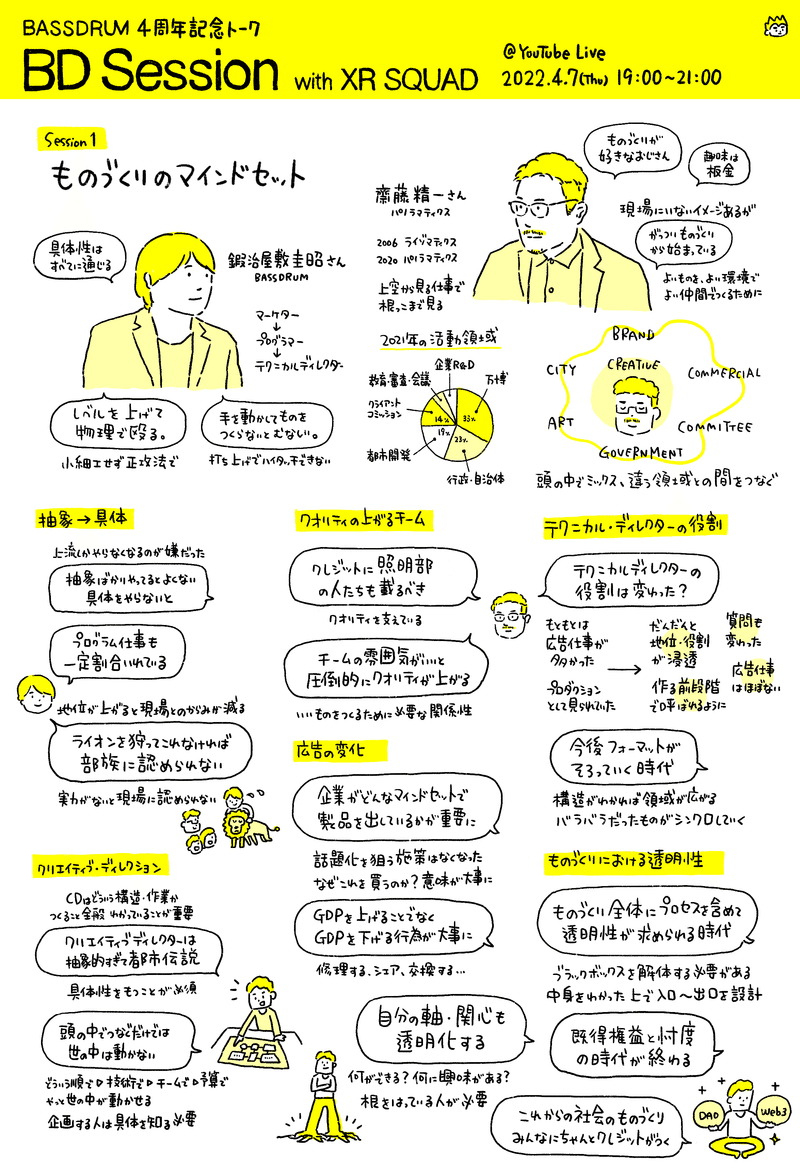 BASSDRUM 4周年記念トーク
BD Session with XR SQUAD
@YouTube Live
2022.4.7(Thu) 19:00~21:00
Session1
ものづくりのマインドセット
具体性は
すべてに通じる
鍛治屋敷圭昭さん
BASSDRUM
マーケター
↓
プログラマー
↓
テクニカルディレクター
レベルを上げて
物理で殴る。
小細工せず正攻法で
手を動かしてものを
つくらないとむない。
打ち上げでハイタッチできない
齋藤精一さん
パノラマティクス
2006 ライゾマティクス
2020 パノラマティクス
上空から見る仕事で
根っこまで見る
ものづくりが
好きなおじさん
趣味は
板金
現場にいないイメージあるが
がっついものづくり
から始まっている
よいものを、よい環境で
よい仲間でつくるために
2021年の活動領域
企業R&D
教育・審査・会議
万博
クライアント
コミッション
14%
33%
19%
23%
都市開発
行政・自治体
BRAND
CITY
CREATIVE
COMMERCIAL
ART
COMMITTEE
GOVERNMENT
頭の中でミックス、違う領域との間をつなぐ
抽象→具体
上流しかやらなくなるのが嫌だった
抽象ばかりやってるとよくない
具体をやらないと
プログラム仕事も
一定割合いれている
地位が上がると現場とのからみが減る
ライオンを狩ってこれなければ
部族に認められない
実力がないと現場に認められない
クリエイティブ・ディレクション
CDはどういう構造・作業か
つくること全般わかっていることが重要
クリエイティブディレクターは
抽象的すぎて都市伝説
具体性をもつことが必須
頭の中でつなぐだけでは
世の中は動かない
どういう順で▷技術で▷チームで▷予算で
やって世の中が動かせる
企画する人は具体を知る必要
クオリティの上がるチーム
クレジットに照明部
の人たちも載るべき
クオリティを支えている
チームの雰囲気がいいと
圧倒的にクオリティが上がる
いいものをつくるために必要な関係性
広告の変化
企業がどんなマインドセットで
製品を出しているかが重要に
話題化を狙う施策はなくなった
なぜこれを買うのか?意味が大事に
GDPを上げることでなく
GDPを下げる行為が大事に
修理する、シェア、交換する…
自分の軸・関心も
透明化する
何ができる?何に興味がある?
根をはっている人が必要
テクニカル・ディレクターの役割
テクニカルディレクターの
役割は変わった?
もともとは
広告仕事が
多かった
プロダクション
として見られていた
→
だんだんと
地位・役割
が浸透
作る前段階
で呼ばれるように
質問も
変わった
広告仕事
はほぼない
今後フォーマットが
そろっていく時代
構造がわかれば領域が広がる
バラバラだったものがシンクロしていく
ものづくりにおける透明性
ものづくり全体にプロセスを含めて
透明性が求められる時代
ブラックボックスを解体する必要がある
中身をわかった上で入口〜出口を設計
既得権益と忖度
の時代が終わる
これからの社会のものづくり
みんなにちゃんとクレジットがつく
DAO
Web3